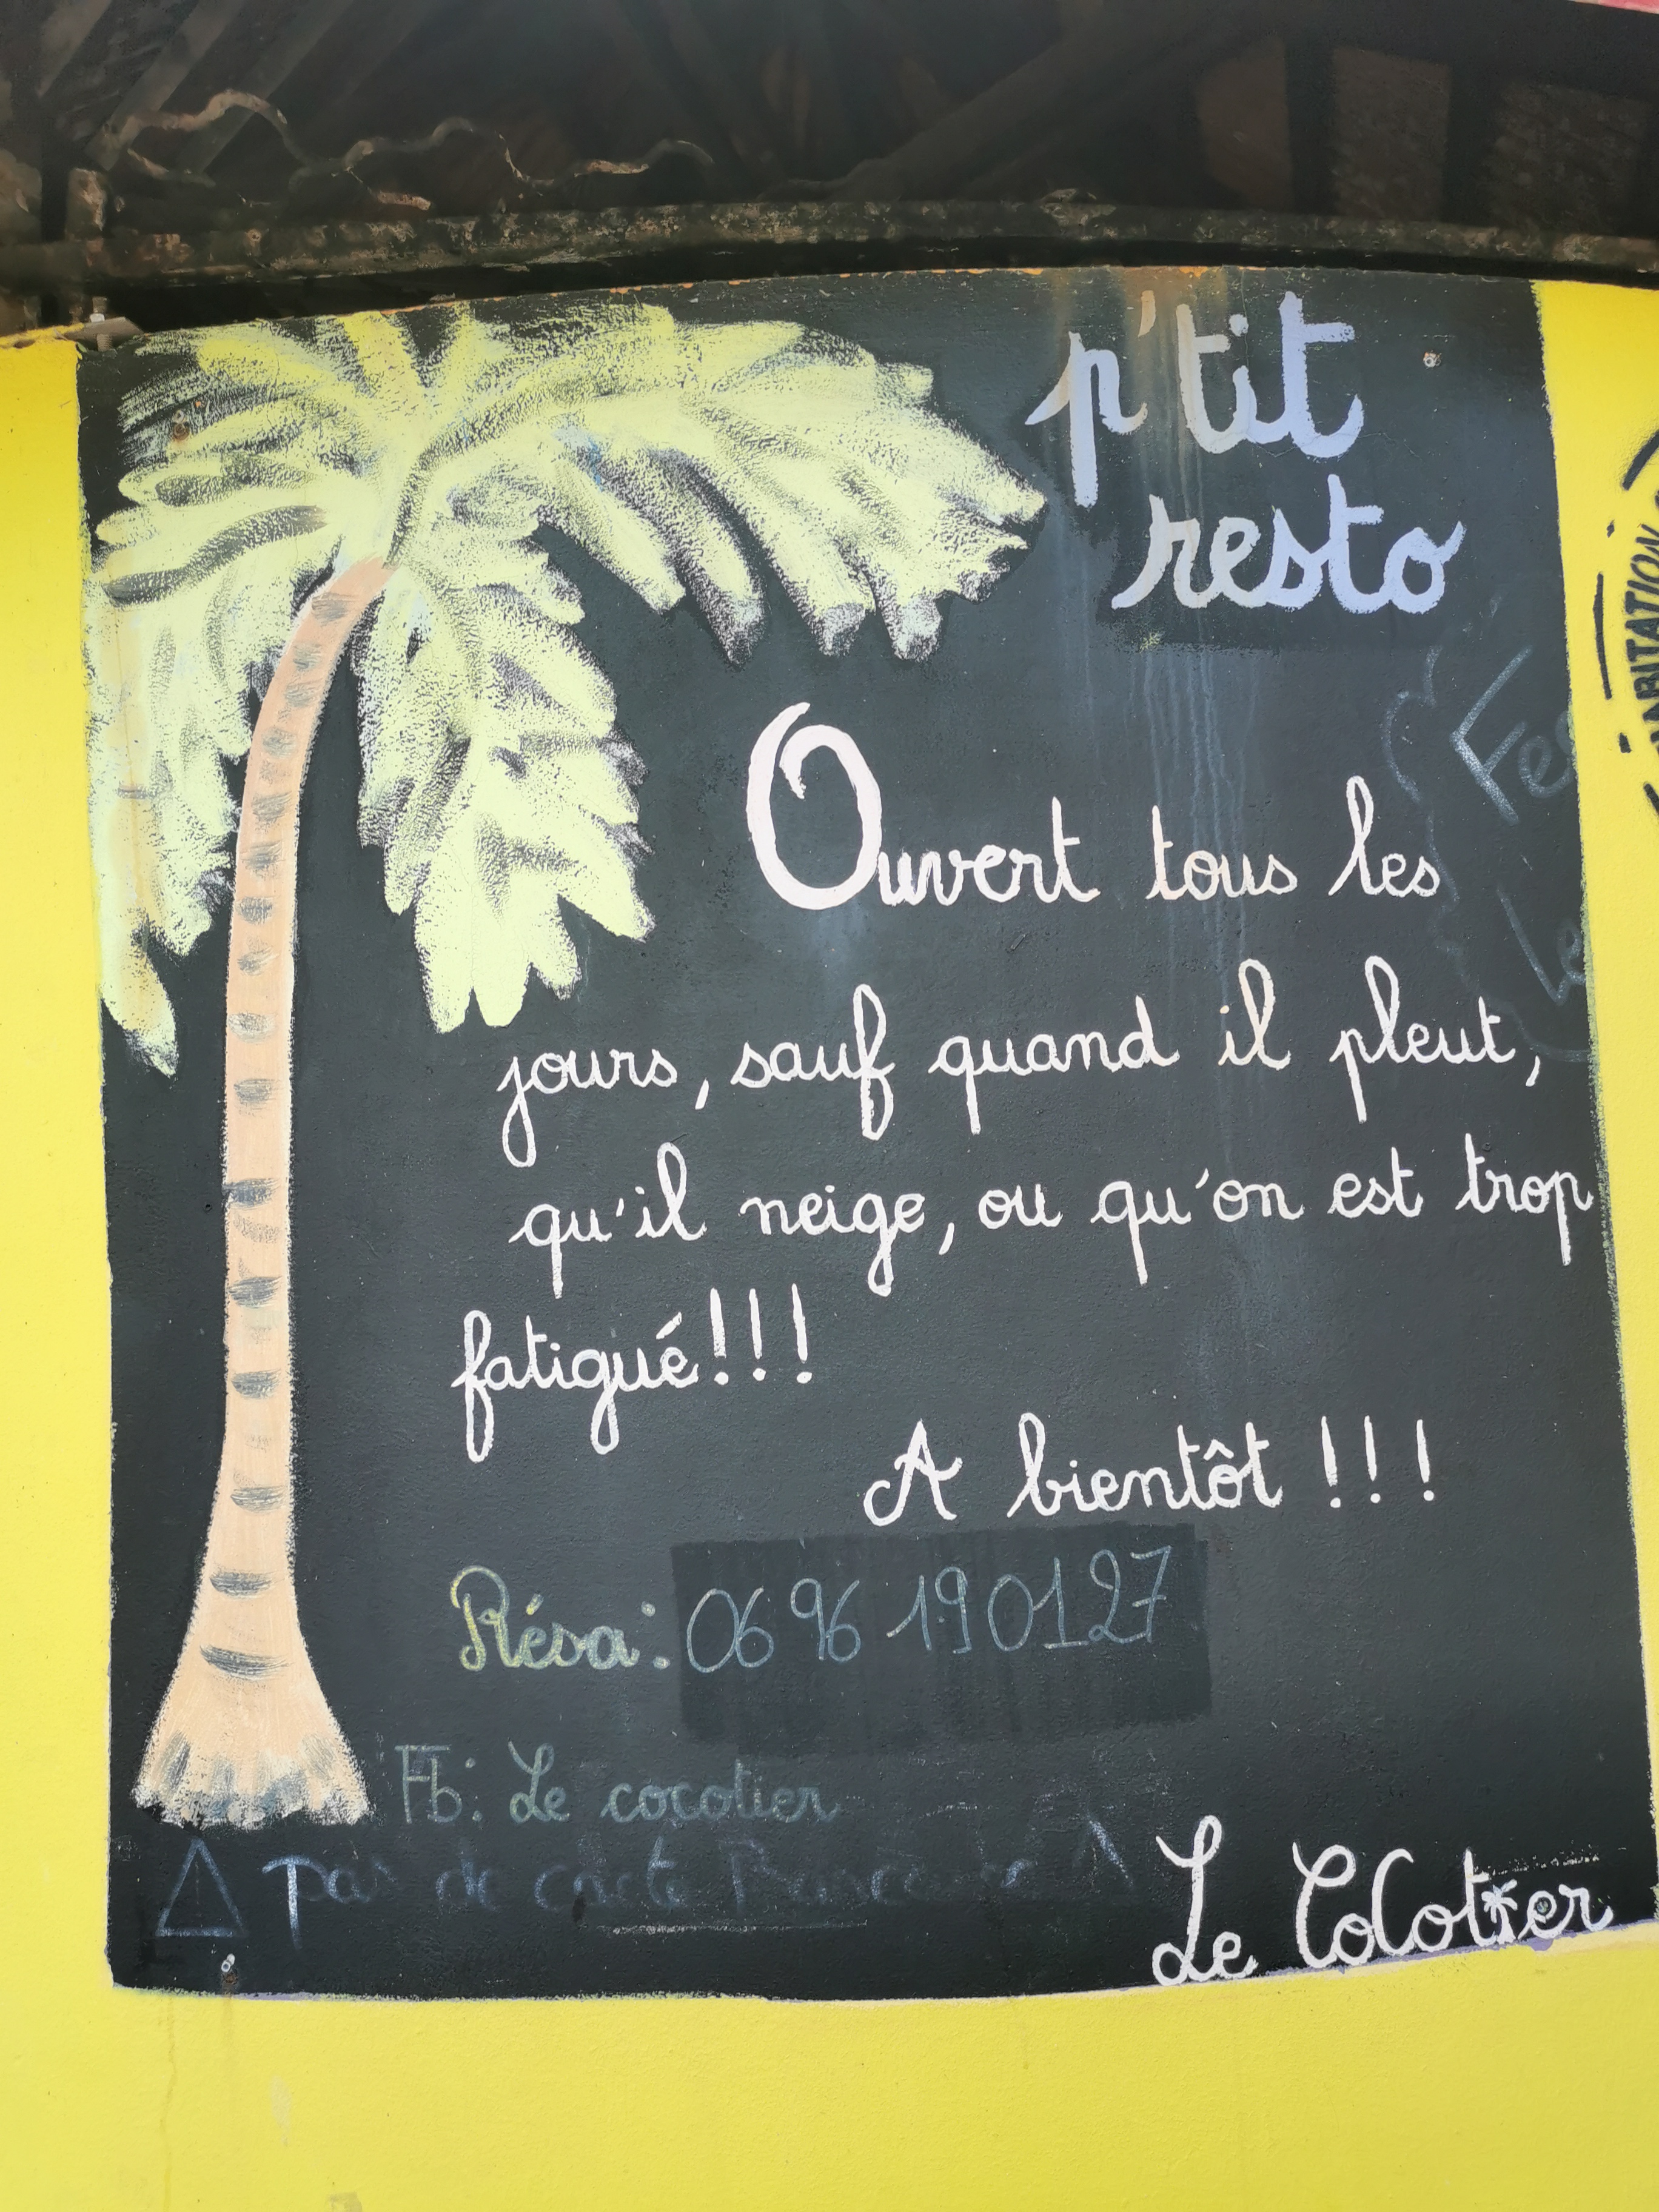 p'tit
resto
Ouvert tous les
jours, sauf quand il pleut,
qu'il neige, ou qu'on est trop
fatigué!!!
A bientôt !!!
Résa: 06 96 19 01 27
Fb: Le cocotier
pas de carte
Le CoCotier